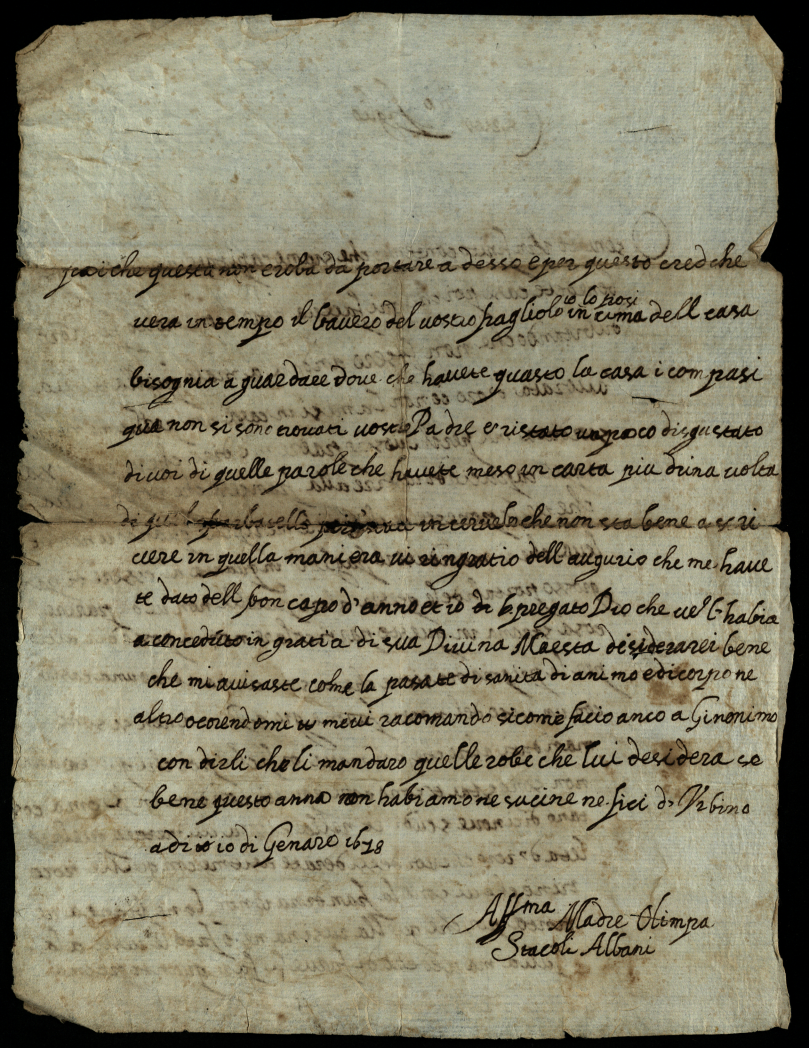 poi che questa non e roba da portare adesso e per questo cred che
vera in tempo il bavero del vostro fagliolo io lo posi in cima dell casa
bisognia a guardare dove che havete guasto la casa i compasi
qua non si sono trovati vostro Padre e ristato un poco disgustato
di voi di quelle parole che havete meso in carta piu d'una volta
di in cervelo che non sta bene a scri
vere in quella maniera vi ringratio dell augurio che me have
te dato dell bon capo d'anno et io di pregato Dio che ve l'habia
a conceduto in gratia di sua Divina Maesta desiderarei bene
che mi avisaste come la pasate di sanita di animo e di corpo ne
altro ocorendomi me vi racomando si come facio anco a Gironimo
con dirli che li mandaro quelle robe che lui desidera se
bene questo anno non habiamo ne sucine ne fici d'Urbino
a di io di Genaro 1678
Aff.ma Madre Olimpa
Stacoli Albani